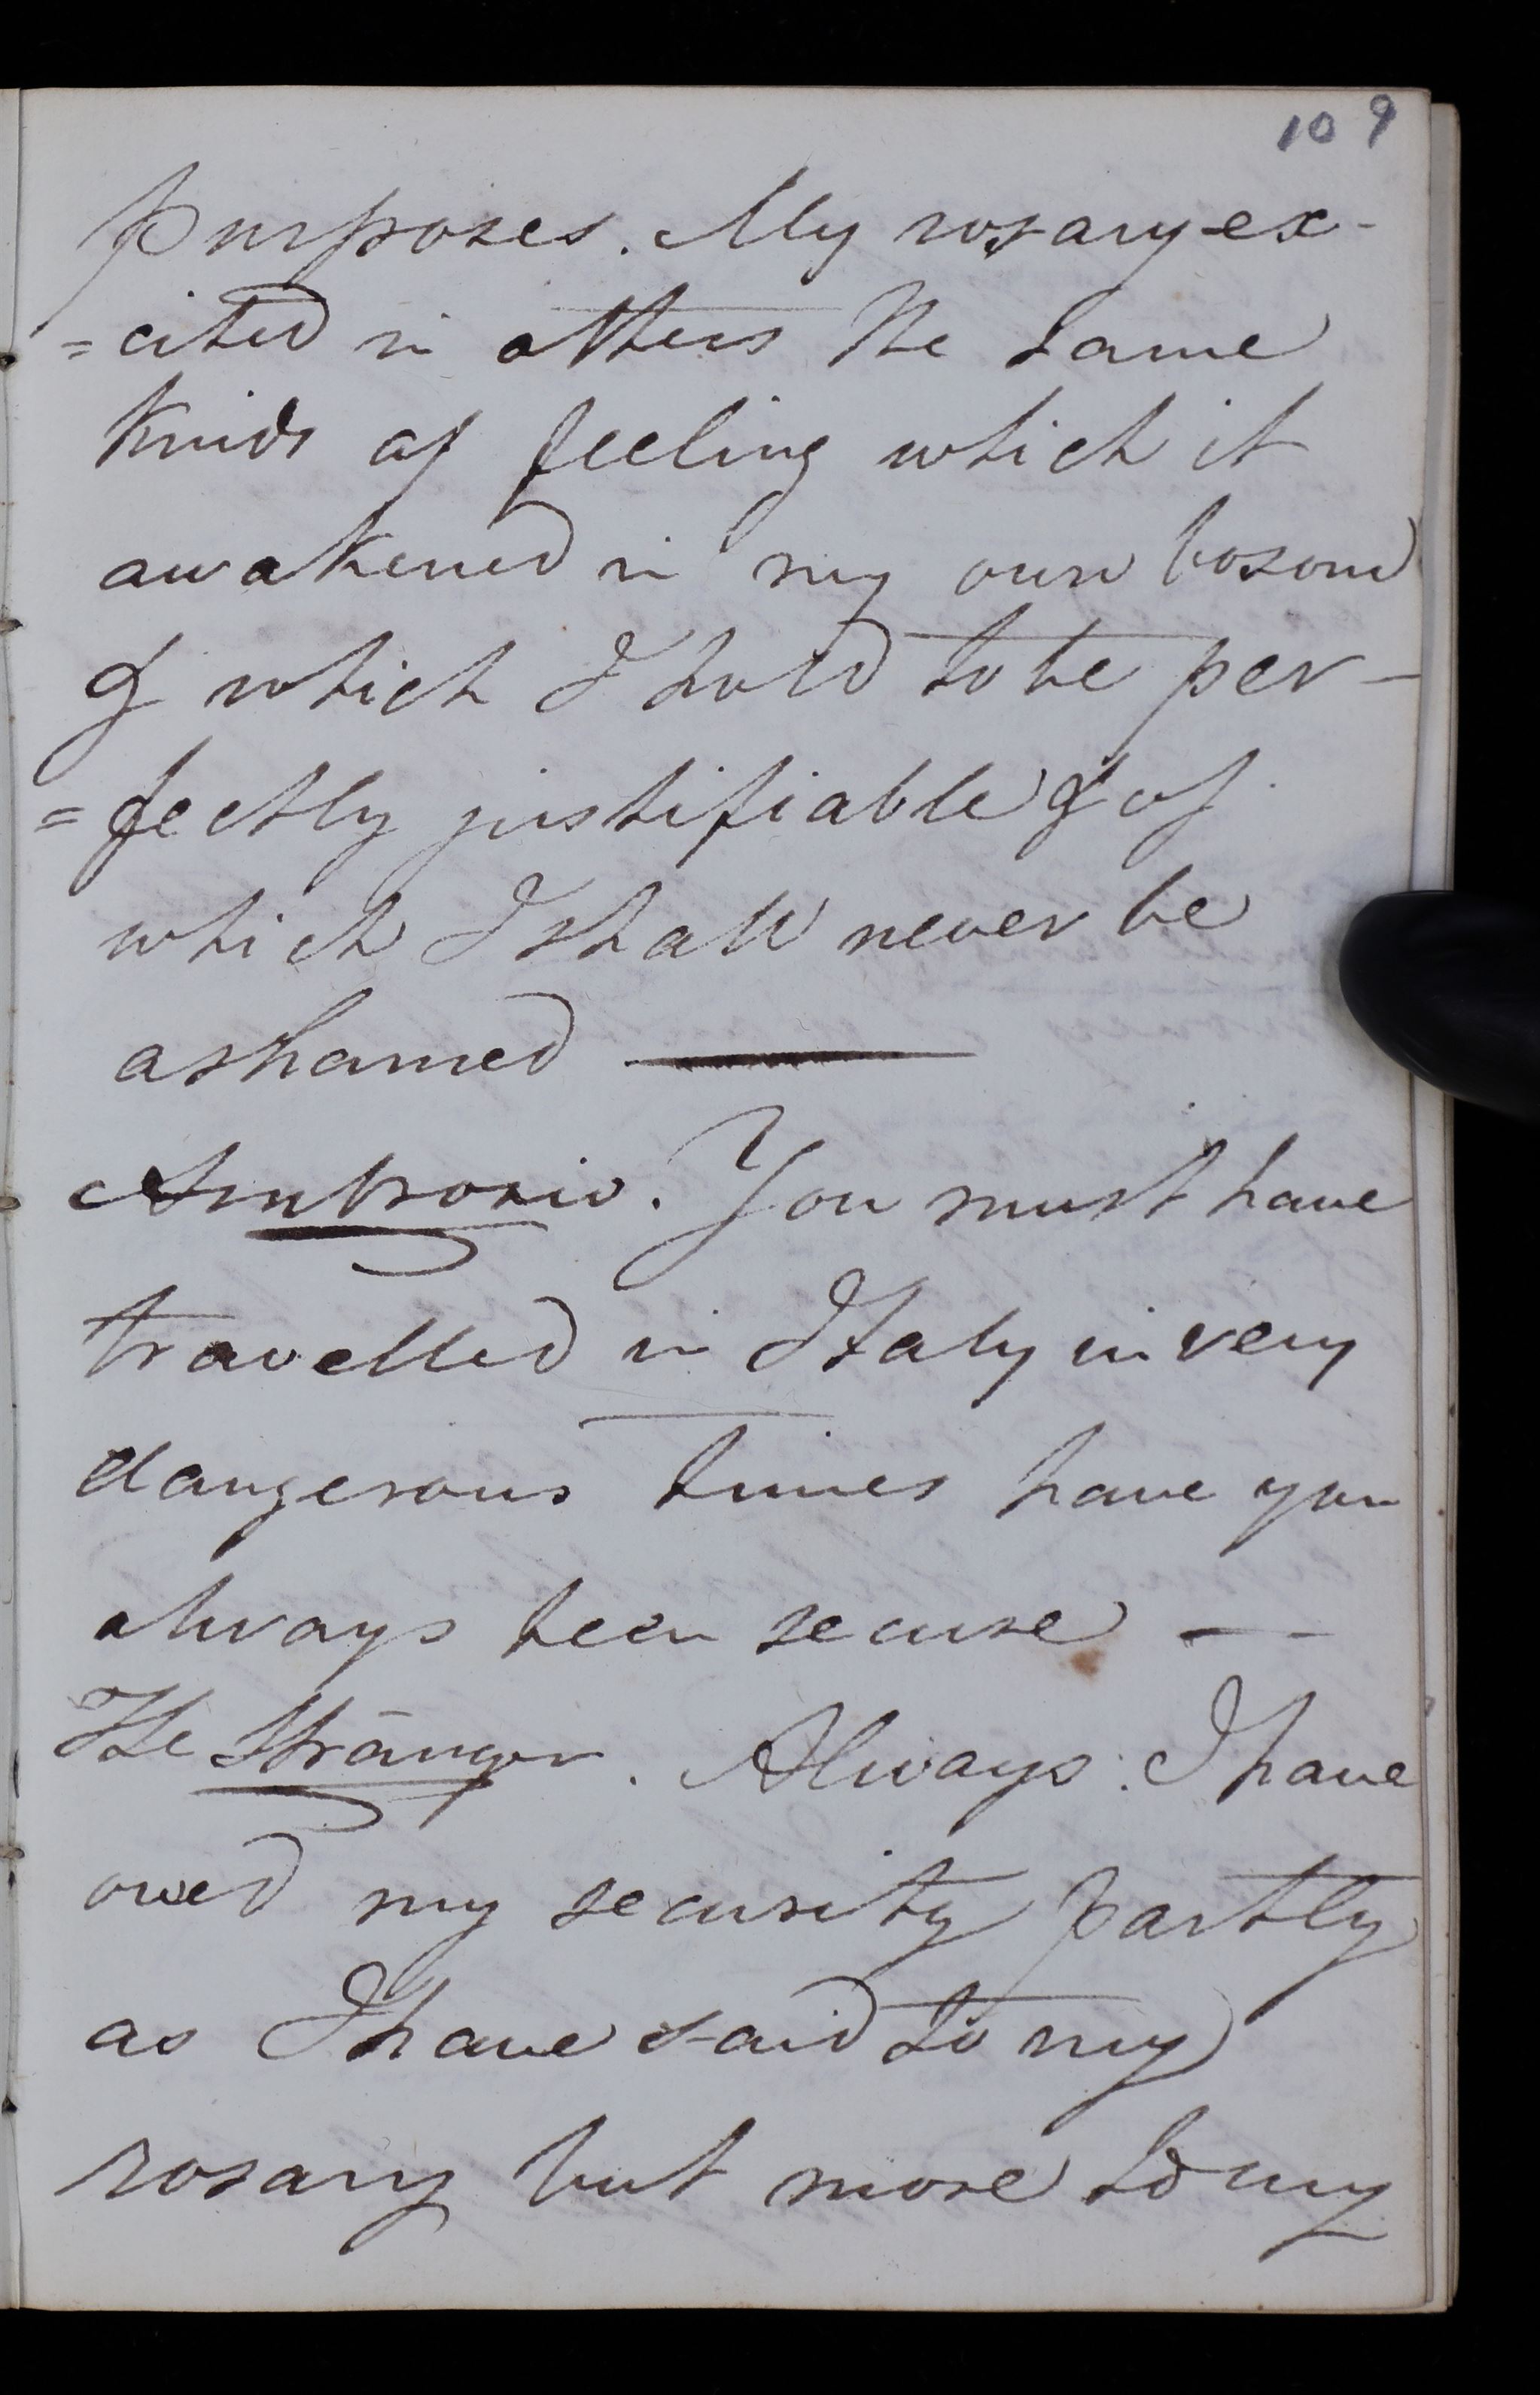 109
purposes. My rosary ex-
=cited in others the same
kinds of feeling which it
awakened in my own bosom
& which I hold to be per-
=fectly justifiable & of
which I shall never be
ashamed ———
Ambrosio. You must have
travelled in Italy in very
dangerous times have you
always been secure — -
The Stranger. Always. I have
owed my security partly
as I have said to my
rosary but more to my